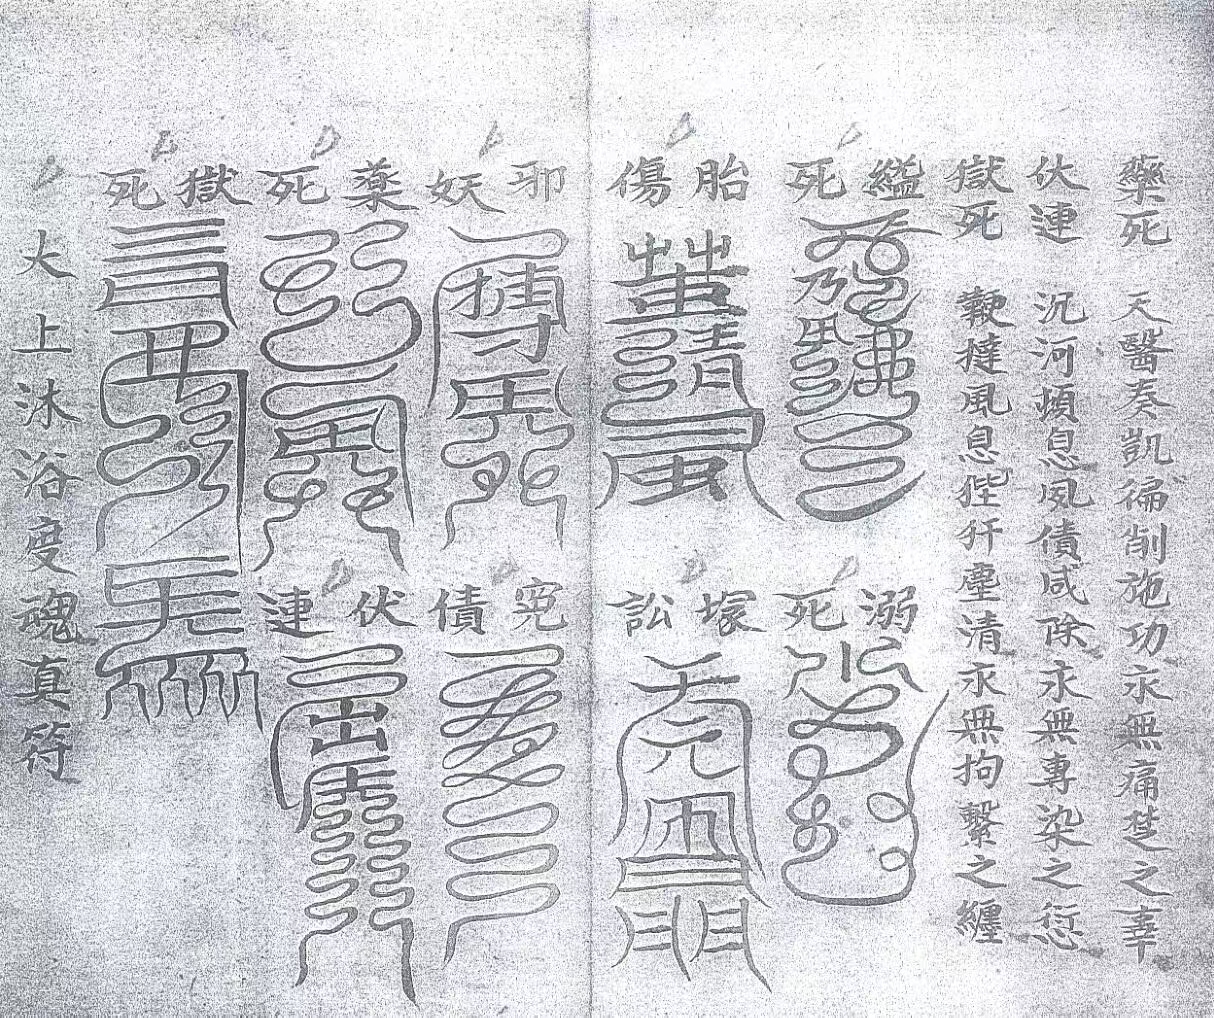 藥死 天醫奏凱徧削施功永無痛楚之辜
伏連 沉河頓息夙債咸除永無專染之愆
獄死 鞭撻風息狴犴塵清永無拘繫之纏
縊死
胎傷
邪妖
薬死
獄死
溺死
塚訟
寃債
伏連
大上沐浴度魂真符